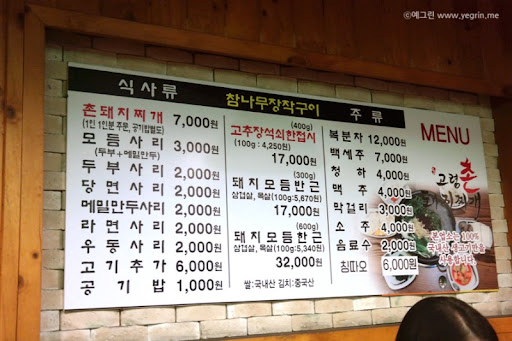 ©예그린 www.yegrin.me
식사류
촌돼지찌개 7,000원
(1인 1인분 주문, 공기밥별도)
모듬사리 3,000원
(두부+메밀만두)
두부사리 2,000원
당면사리 2,000원
메밀만두사리 2,000원
라면사리 2,000원
우동사리 2,000원
고기추가 6,000원
공기밥 1,000원
참나무장작구이
(400g)
고추장석쇠한접시
(100g : 4,250원)
17,000원
(300g)
돼지모듬반근
삼겹살, 목살(100g:5,670원)
17,000원
(600g)
돼지모듬한근
삼겹살, 목살(100g:5,340원)
32,000원
쌀:국내산 김치:중국산
주류
복분자 12,000원
백세주 7,000원
청하 4,000원
맥주 4,000원
막걸리 3,000원
소주 4,000원
음료수 2,000원
칭따오 6,000원
MENU
고령촌
돼지찌개
본업소는 100%
국내산
사용합니다